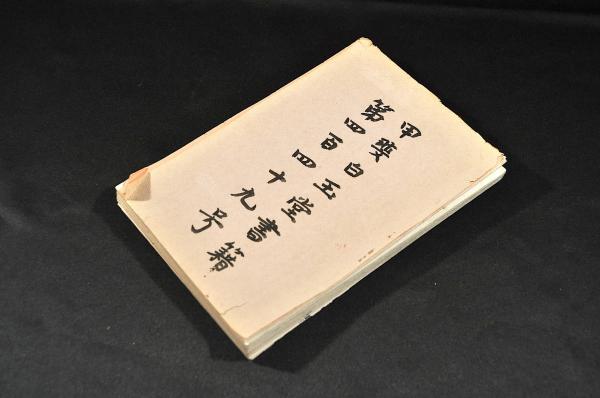 甲斐白玉堂書籍
第四百四十九号